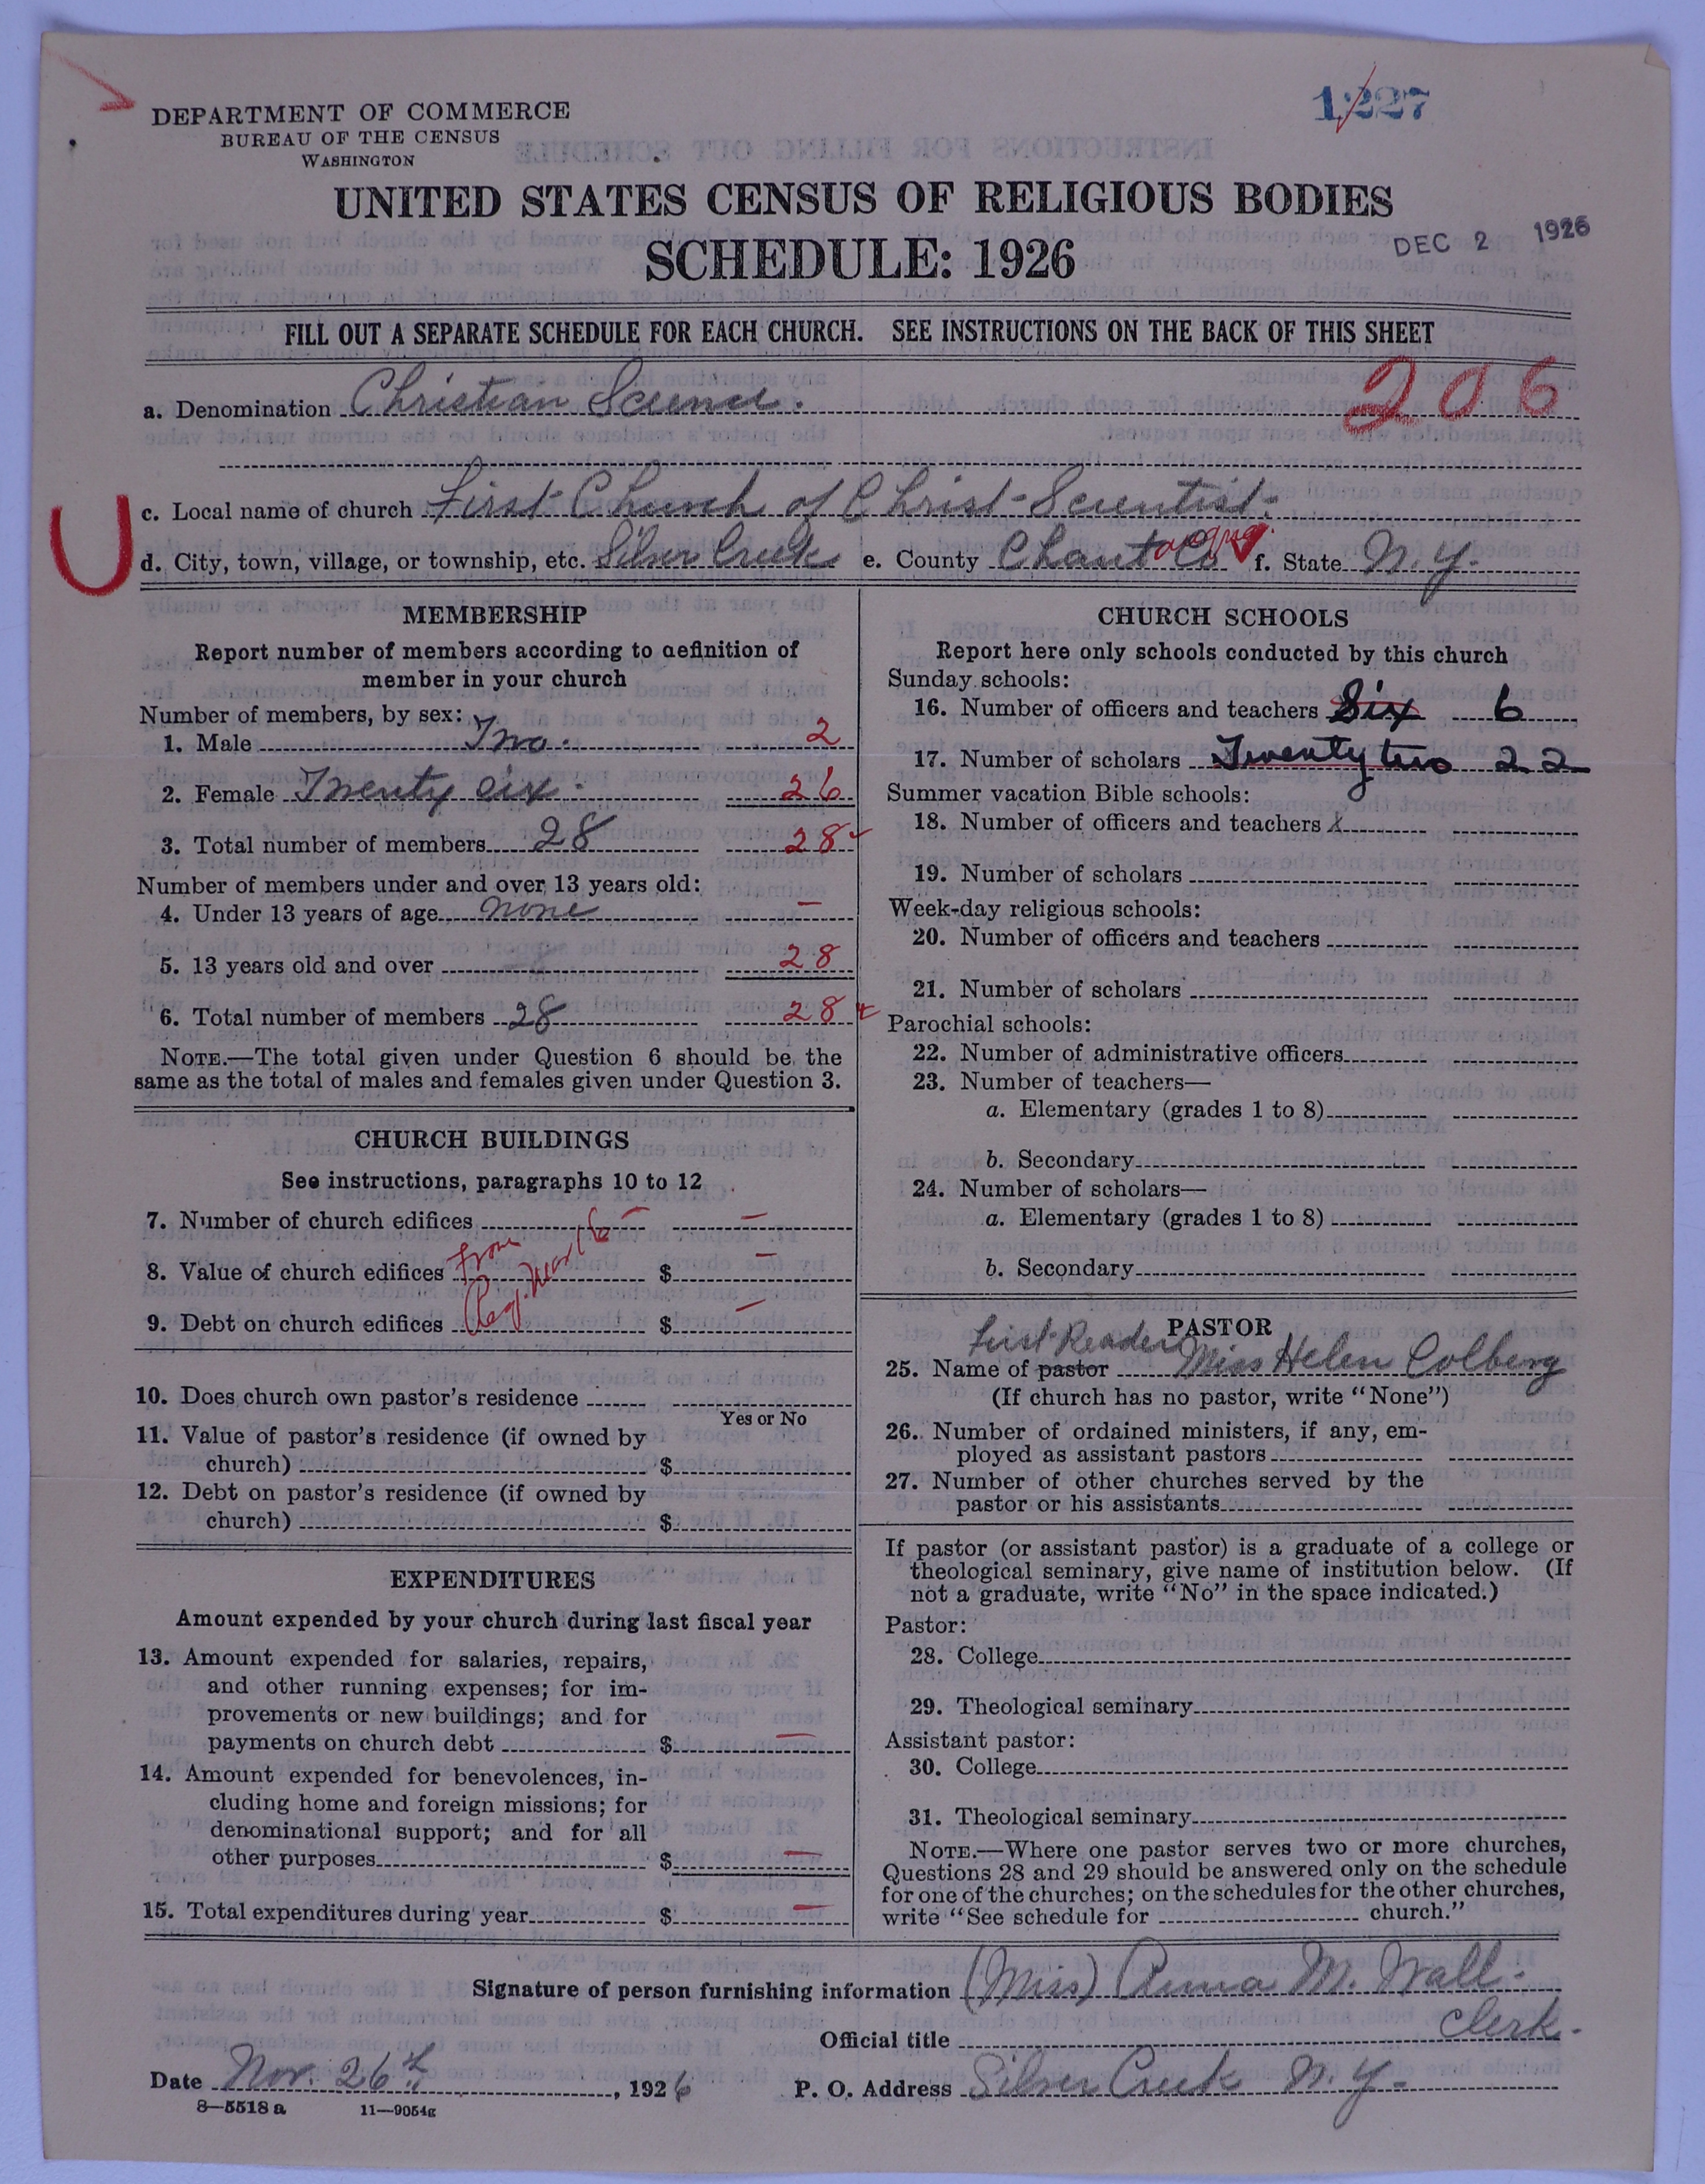 1,227
DEPARTMENT OF COMMERCE
BUREAU OF THE CENSUS
WASHINGTON
UNITED STATES CENSUS OF RELIGIOUS BODIES
SCHEDULE: 1926
DEC 2 1926
FILL OUT A SEPARATE SCHEDULE FOR EACH CHURCH. SEE INSTRUCTIONS ON THE BACK OF THIS SHEET
a. Denomination Christian Science. 206
U
c. Local name of church First Church of Christ-Scientist.
d. City, town, village, or township, etc. Silver Creek e. County Chaut Co auqua f. State N.Y.
MEMBERSHIP
Report number of members according to definition of
member in your church
Number of members, by sex:
1. Male Two. 2
2. Female Twenty six. 26
3. Total number of members 28 28
Number of members under and over 13 years old:
4. Under 13 years of age none –
5. 13 years old and over 28
6. Total number of members 28 28
NOTE.—The total given under Question 6 should be the
same as the total of males and females given under Question 3.
CHURCH BUILDINGS
See instructions, paragraphs 10 to 12
7. Number of church edifices – –
8. Value of church edifices from $ –
9. Debt on church edifices $ –
10. Does church own pastor's residence
Yes or No
11. Value of pastor's residence (if owned by
church) $
12. Debt on pastor's residence (if owned by
church) $
EXPENDITURES
Amount expended by your church during last fiscal year
13. Amount expended for salaries, repairs,
and other running expenses; for im-
provements or new buildings; and for
payments on church debt $ –
14. Amount expended for benevolences, in-
cluding home and foreign missions; for
denominational support; and for all
other purposes $ –
15. Total expenditures during year $ –
CHURCH SCHOOLS
Report here only schools conducted by this church
Sunday schools:
16. Number of officers and teachers Six 6
17. Number of scholars Twenty two 22
Summer vacation Bible schools:
18. Number of officers and teachers x
19. Number of scholars
Week-day religious schools:
20. Number of officers and teachers
21. Number of scholars
Parochial schools:
22. Number of administrative officers
23. Number of teachers—
a. Elementary (grades 1 to 8)
b. Secondary
24. Number of scholars—
a. Elementary (grades 1 to 8)
b. Secondary
PASTOR
First Reader
25. Name of pastor Miss Helen Colberg
(If church has no pastor, write "None")
26. Number of ordained ministers, if any, em-
ployed as assistant pastors
27. Number of other churches served by the
pastor or his assistants
If pastor (or assistant pastor) is a graduate of a college or
theological seminary, give name of institution below. (If
not a graduate, write "No" in the space indicated.)
Pastor:
28. College
29. Theological seminary
Assistant pastor:
30. College
31. Theological seminary
NOTE.—Where one pastor serves two or more churches,
Questions 28 and 29 should be answered only on the schedule
for one of the churches; on the schedules for the other churches,
write "See schedule for church."
Signature of person furnishing information (Miss) Anna M. Wall.
Official title Clerk.
Date Nov. 26th, 1926 P. O. Address Silver Creek N.Y.
8—5518 a 11—9054g